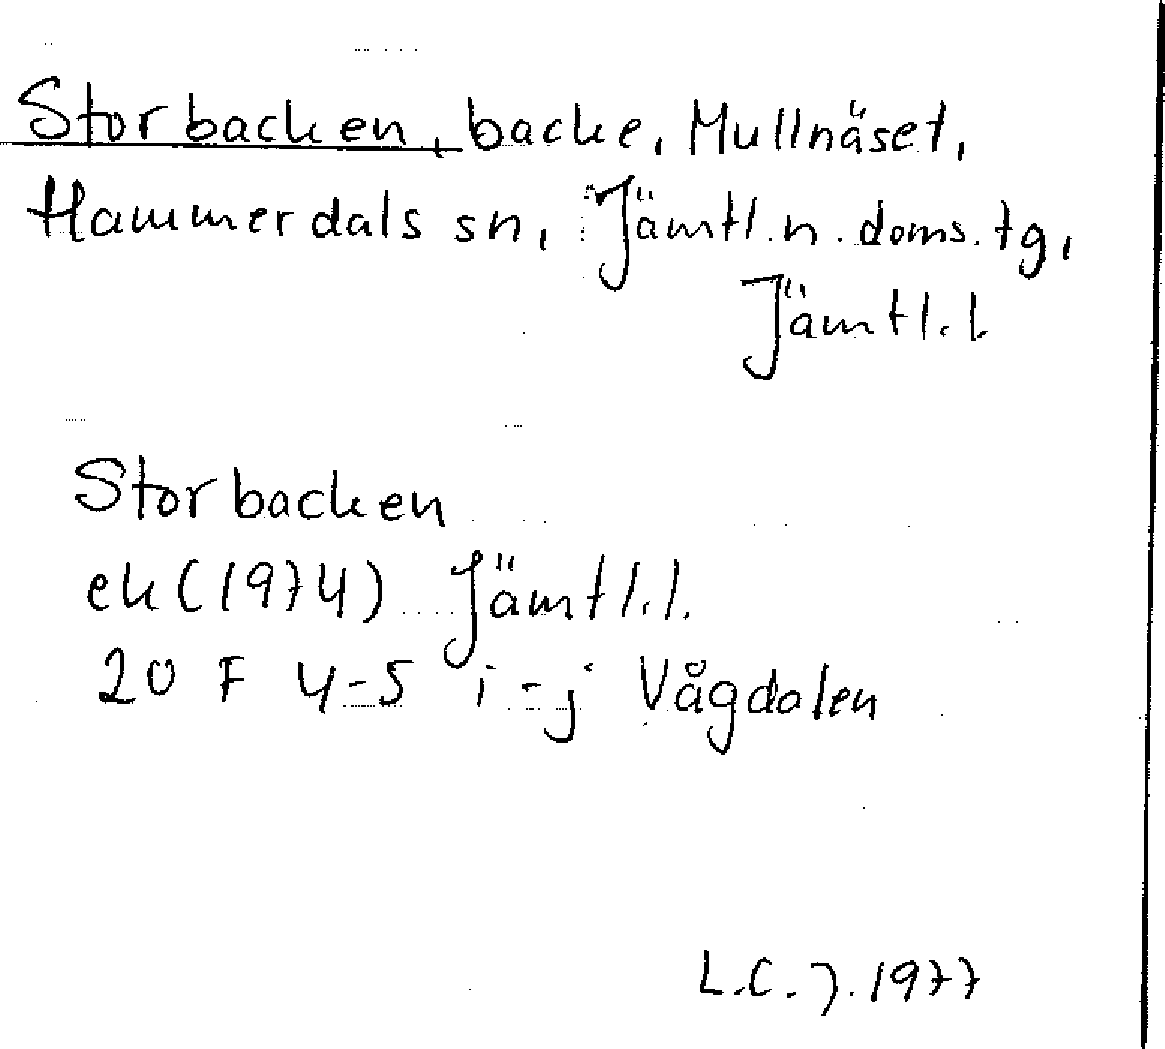 Storbacken, backe, Mullnäset,
Hammerdals sn, Jämtl. n. doms. tg,
Jämtl. l.
Storbacken
ek (1974) Jämtl. l.
20 F 4-5 i-j Vågdalen
L.C.J. 1977